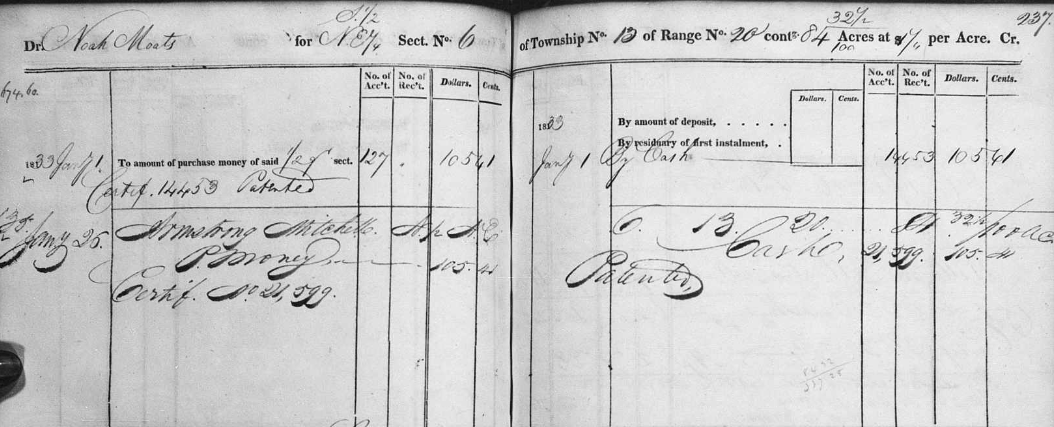 237.
S. 1/2 32 1/2
Dr. Noah Moats for N. E 1/4 Sect. No. 6 of Township No. 13 of Range No. 20 contg. 84 /100 Acres at 1/4 per Acre. Cr.
No. of Acc't. No. of Rec't. Dollars. Cents. No. of Acc't. No. of Rec't. Dollars. Cents.
674.60. Dollars. Cents.
1833 By amount of deposit, . . . . . .
By residuary of first instalment, .
1833 Jany 1. To amount of purchase money of said 1/2 qr sect. 127 105 41 Jany 1 By Cash 14453 105 41
Certif. 14453 Patented
Jany 25. Armstrong Mitchell. N. E 6. 13. 20. 84. 32 1/2 /100 ac
P. Money 105. 41 Cash, 21,599. 105. 41
Certif. No 21,599. Patented,